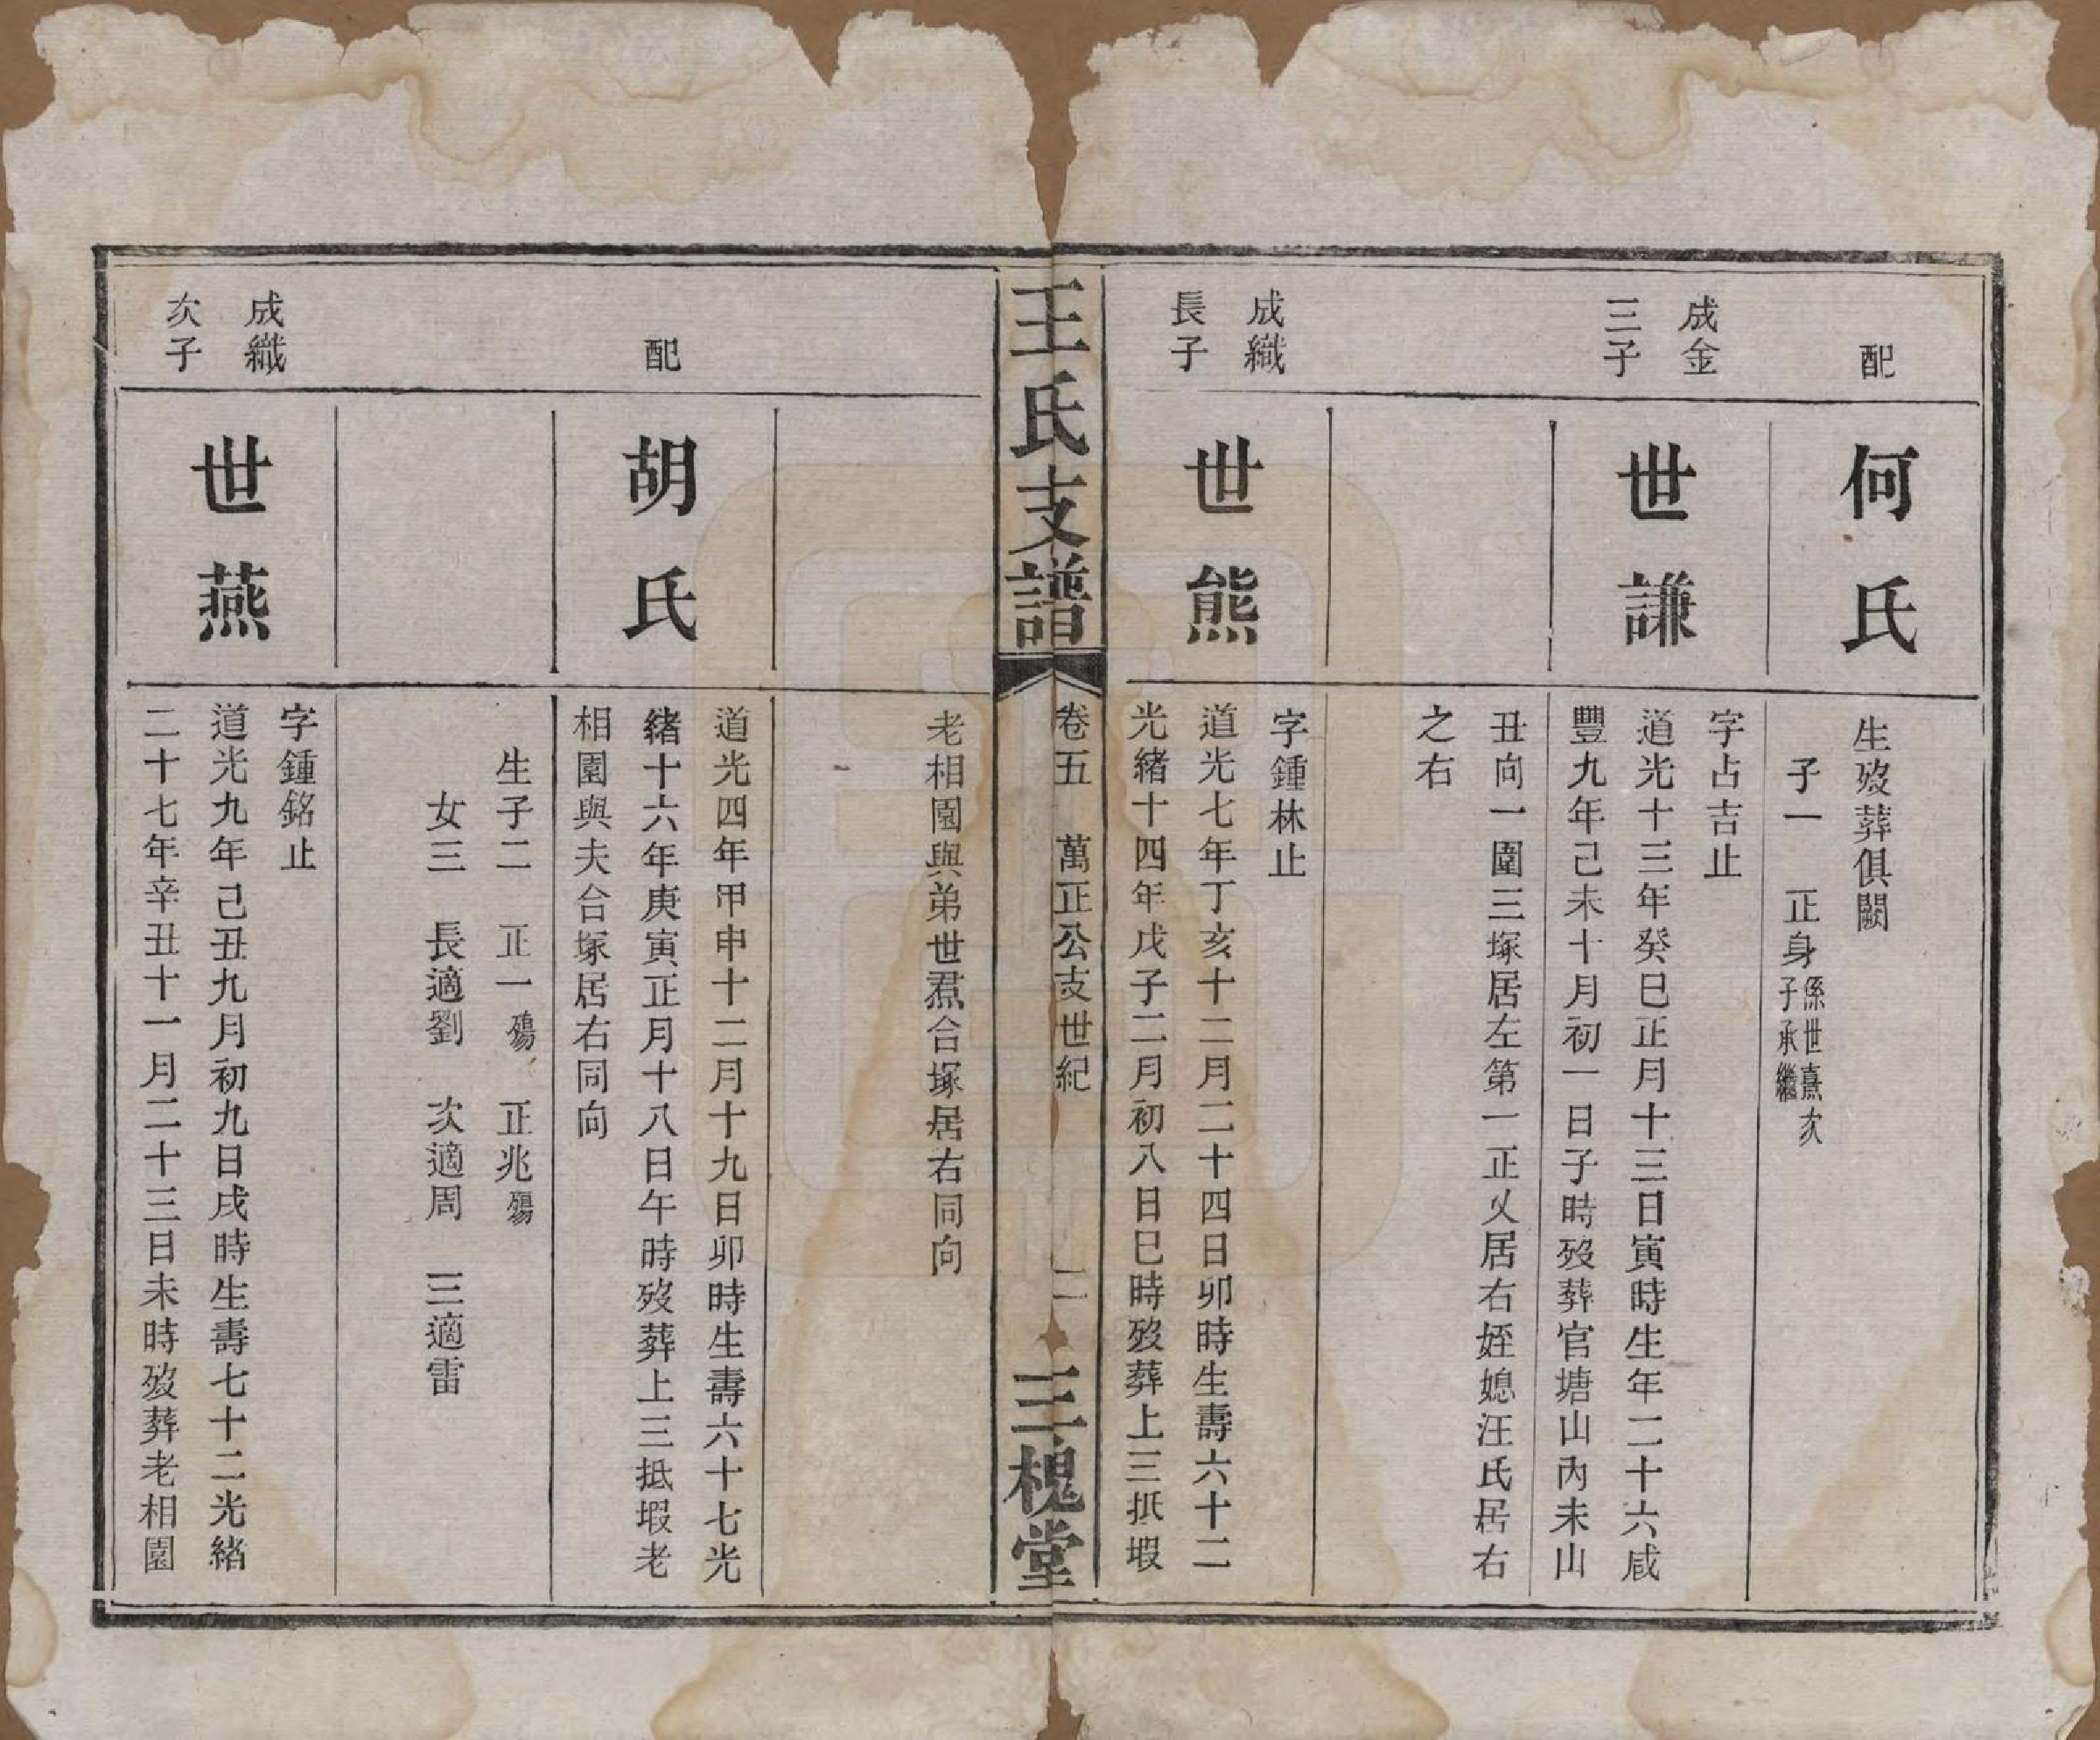 配
何氏
生歿葬俱闕
子一　正身係世熹次子承繼
成金
三子
世謙
字占吉止
道光十三年癸巳正月十三日寅時生年二十六咸
豐九年己未十月初一日子時歿葬官塘山內未山
丑向一圍三塚居左第一正乂居右姪媳汪氏居右
之右
成織
長子
世熊
字鍾林止
道光七年丁亥十二月二十四日卯時生壽六十二
光緒十四年戊子二月初八日巳時歿葬上三抵塅
王氏支譜
卷五　萬正公支世紀
二
三槐堂
老相園與弟世焄合塚居右同向
配
胡氏
道光四年甲申十二月十九日卯時生壽六十七光
緒十六年庚寅正月十八日午時歿葬上三抵塅老
相園與夫合塚居右同向
生子二　正一殤　正兆殤
女三　長適劉　次適周　三適雷
成織
次子
世燕
字鍾銘止
道光九年己丑九月初九日戌時生壽七十二光緒
二十七年辛丑十一月二十三日未時歿葬老相園